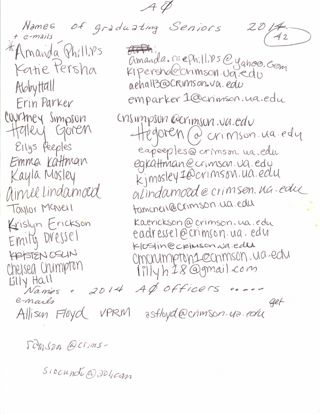 AØ
Names of graduating Seniors 2014
+ e-mails 42
*Amanda Phillips amanda.raephillips@yahoo.com
Katie Persha klpersha@crimson.ua.edu
Abby Hall aehall3@crimson.ua.edu
Erin Parker emparker1@crimson.ua.edu
Courtney Simpson cnsimpson@crimson.ua.edu
Haley Goren hegoren@crimson.ua.edu
Eilys Peeples eapeoples@crimson.ua.edu
Emma Kattman egkattman@crimson.ua.edu
Kayla Mosley kjmosley1@crimson.ua.edu
Aimee Lindamood alindamood@crimson.ua.edu
Taylor McNeil tamcneil@crimson.ua.edu
Krislyn Erickson kaerickson@crimson.ua.edu
Emily Dressel eadressel@crimson.ua.edu
Kristen @crimson.ua.edu
Chelsea Crumpton cmcrumpton1@crimson.ua.edu
Lilly Hall lillyh18@gmail.com
Names + 2014 AØ Officers -----
e-mails get
Allison Floyd VPRM asfloyd@crimson.ua.edu
@crims-